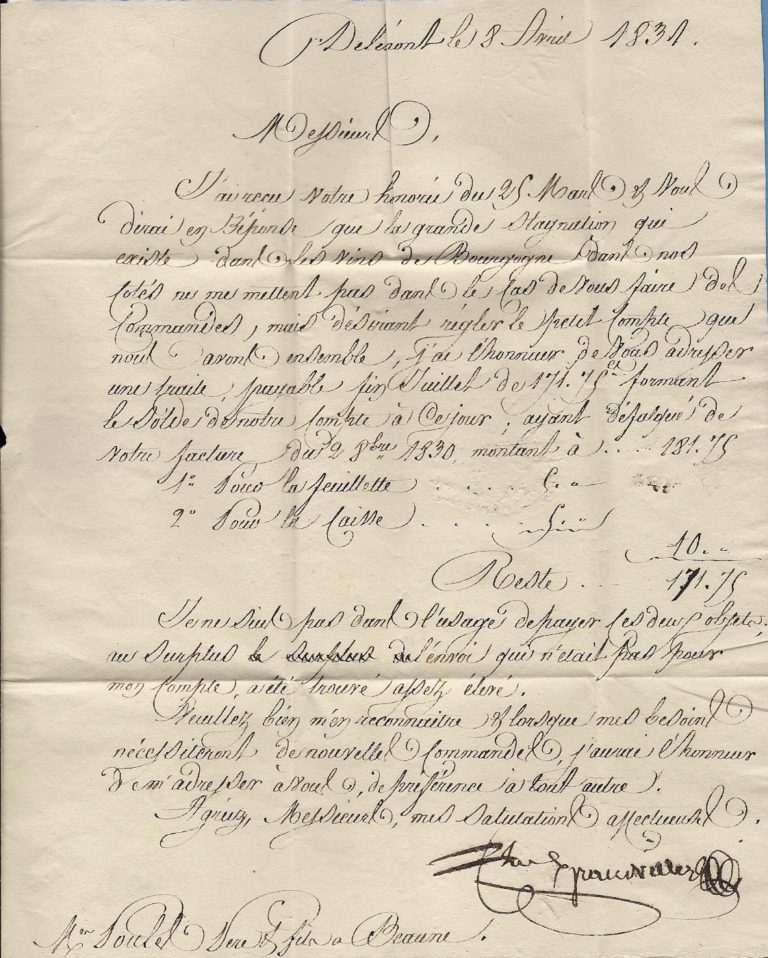 Delémont le 8 Avril 1831.
Messieurs,
J'ai reçu Votre honorée du 25 Mars & Vous
dirai en Réponse que la grande stagnation qui
existe dans les vins de Bourgogne dans nos
Cotés ne me mettent pas dans le Cas de Vous faire des
Commandes, mais désirant régler le petit Compte que
nous avons ensemble, j'ai l'honneur de Vous adresser
une traite, payable fin Juillet de 171.75 formant
le Solde de notre Compte à Ce Jour, ayant défalqué de
Votre facture du 2 8bre 1830 montant à .... 181.75
1° Pour la feuillette ..... 5. "
2° Pour la Caisse ..... 5. "
10. "
Reste ... 171.75
Je ne suis pas dans l'usage de payer ces deux objets,
au surplus le surplus de l'envoi qui n'était pas pour
mon Compte, a été trouvé assez élevé.
Veuillez bien m'en reconnaitre & lorsque mes besoins
nécessiteront de nouvelles Commandes, j'aurai l'honneur
de m'adresser à Vous, de préférence à tout autre.
Agréez, Messieurs, mes salutations affectueuses.
Mrs Poulet Pere & fils a Beaune.